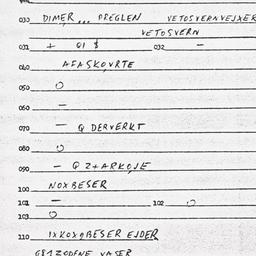 030 DIMER... PREGLEN VETOSVERNVEJXER
VETOSVERN
031 + 032 —
040 AFASKOVRTE
050 O
060 —
070 — Q DERVERKT
080 O
090 — Q Z+ARKOJE
100 NOXBESER
101 — 102 O
103 O
110 IXKOXOBESER EJDER